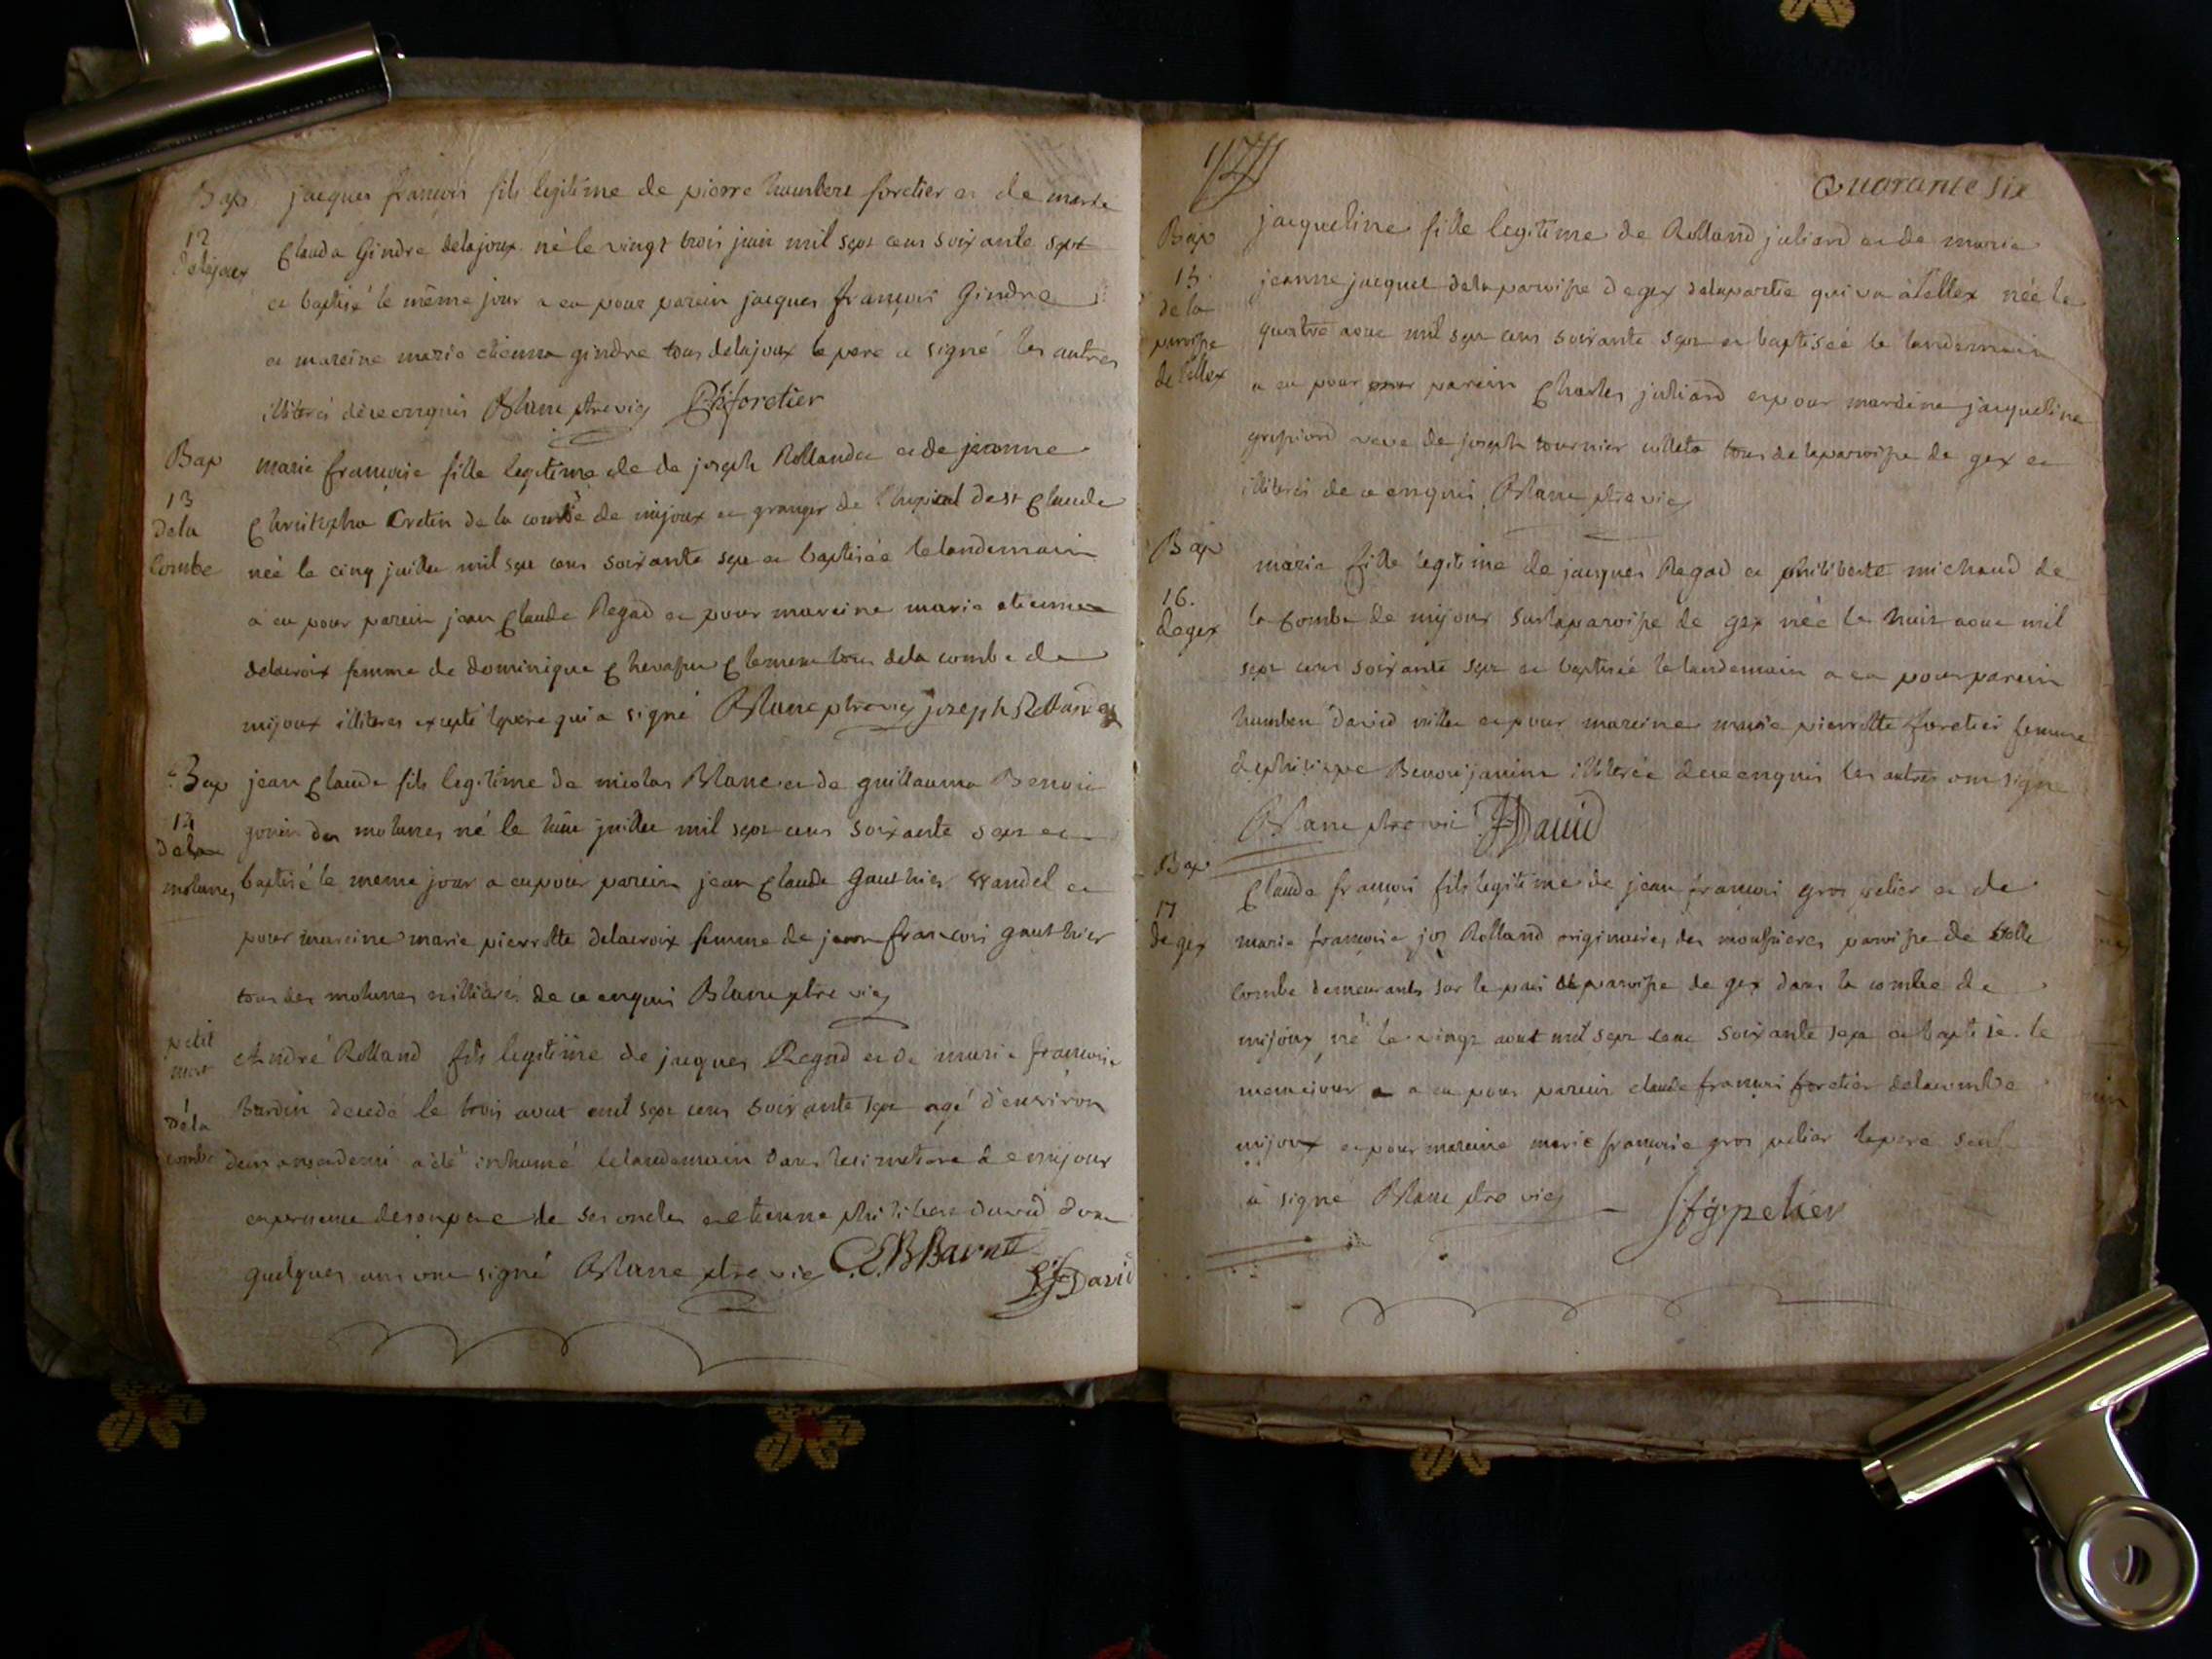 Bap
12
delajoux
jacques francois fils legitime de pierre humbert foretier et de marie
Clauda Gindre delajoux né le vingt trois juin mil sept cens soixante sept
et baptisé le même jour a eu pour parein jacques françois Gindre
et mareine marie etienna gindre tous delajoux le pere a signé les autres
illiterés de ce enquis Blanc ptre vic P h foretier
Bap
13
dela
combe
marie francoise fille legitime de joseph Rollandez et de jeanne
Cretin de la combe de mijoux et granger de l'hopital de st Claude
née le cinq juillet mil sept cens soixante sept et baptisée le landemain
a eu pour parein jean Claude Regad et pour mareine marie etienne
delacroix femme de dominique Chevassu tous dela combe de
mijoux illiteres excepté le pere qui a signé Blanc ptre vic joseph Rollandez
Bap
14
molunes
jean Claude fils legitime de nicolas Blanc et de guillauma Benoit
gonin des molunes né le huit juillet mil sept cens soixante sept et
baptisé le meme jour a eu pour parein jean Claude Gauthier et
pour mareine marie pierrotte delacroix femme de jean francois gauthier
tous des molunes illiterés de ce enquis Blanc ptre vic
petit
mort
1
dela
combe
André Rolland fils legitime de jacques Regad et de marie francoise
Burdin decedé le trois aout mil sept cens soixante sept agé d'environ
deux ans et demi a été inhumé le landemain dans le cimetiere de mijoux
en presence de son pere de ses oncles et etienne philibert david dont
quelques uns ont signé Blanc ptre vic
David
Quarante six
Bap
15
de la
paroisse
de lellex
jacqueline fille legitime de Rolland juliard et de marie
jeanne jacquet dela paroisse de gex dela partie qui va à lellex née le
quatre aout mil sept cens soixante sept et baptisée le landemain
a eu pour parein Charles juliard et pour mareine jacqueline
veve de joseph tournier tous de la paroisse de gex et
illiterés de ce enquis Blanc ptre vic
Bap
16.
de gex
marie fille legitime de jacques Regad et philiberte michaud de
la Combe de mijoux sur la paroisse de gex née le huit aout mil
sept cens soixante sept et baptisée le landemain a eu pour parein
humbert david et pour mareine marie pierrotte foretier femme
de philippe Benoit janin illiterée de ce enquis les autres ont signé
Blanc ptre vic David
Bap
17
de gex
Claude francois fils legitime de jean francois gros pelier et de
marie francoise joz Rolland originaires des moussieres paroisse de
combe demeurants sur le paroisse de gex dans la combe de
mijoux né le vingt aout mil sept cens soixante sept et baptisé le
meme jour a eu pour parein claude francois foretier dela combe
mijoux et pour mareine marie francoise gros pelier le pere seul
a signé Blanc ptre vic jfgpelier